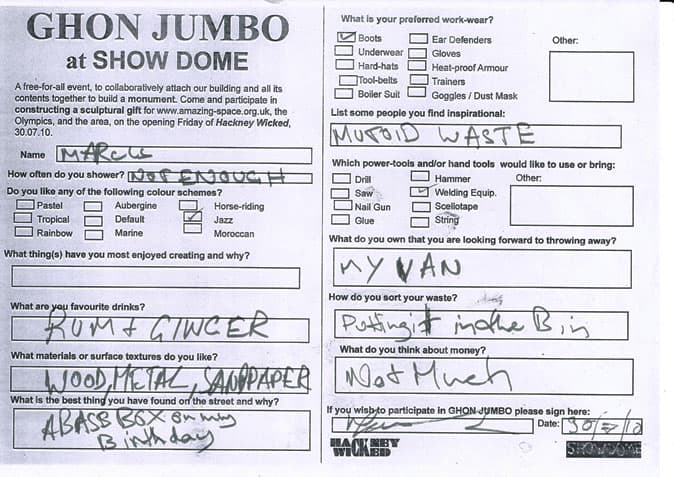 GHON JUMBO
at SHOW DOME
A free-for-all event, to collaboratively attach our building and all its
contents together to build a monument. Come and participate in
constructing a sculptural gift for www.amazing-space.org.uk, the
Olympics, and the area, on the opening Friday of Hackney Wicked,
30.07.10.
Name MARCUS
How often do you shower? NOT ENOUGH
Do you like any of the following colour schemes?
Pastel Aubergine Horse-riding
Tropical Default Jazz
Rainbow Marine Moroccan
What thing(s) have you most enjoyed creating and why?
What are you favourite drinks?
RUM + GINGER
What materials or surface textures do you like?
WOOD, METAL, SANDPAPER
What is the best thing you have found on the street and why?
A BASS BOX on my
Birthday
What is your preferred work-wear?
Boots Ear Defenders Other:
Underwear Gloves
Hard-hats Heat-proof Armour
Tool-belts Trainers
Boiler Suit Goggles / Dust Mask
List some people you find inspirational:
MUTOID WASTE
Which power-tools and/or hand tools would like to use or bring:
Drill Hammer Other:
Saw Welding Equip.
Nail Gun Scellotape
Glue String
What do you own that you are looking forward to throwing away?
MY VAN
How do you sort your waste?
Putting it in the Bin
What do you think about money?
Not Much
If you wish to participate in GHON JUMBO please sign here:
Date: 30/7/10
HACKNEY
WICKED
SHOWDOME